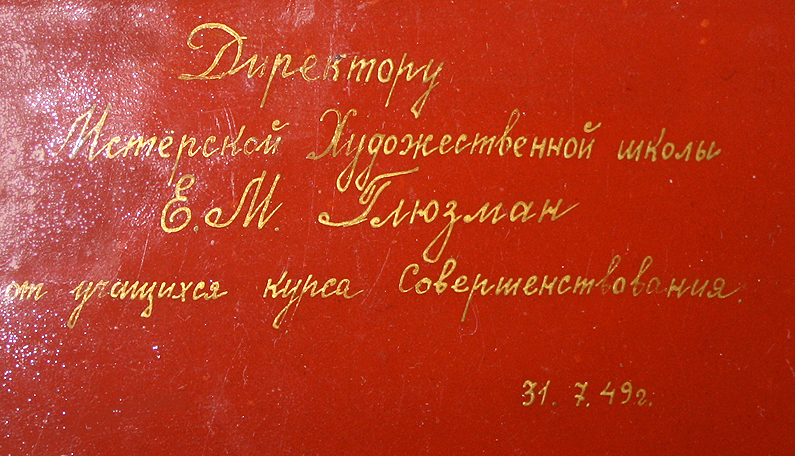 Директору
Мстёрской Художественной школы
Е.М. Глюзман
от учащихся курса Совершенствования.
31. 7. 49г.